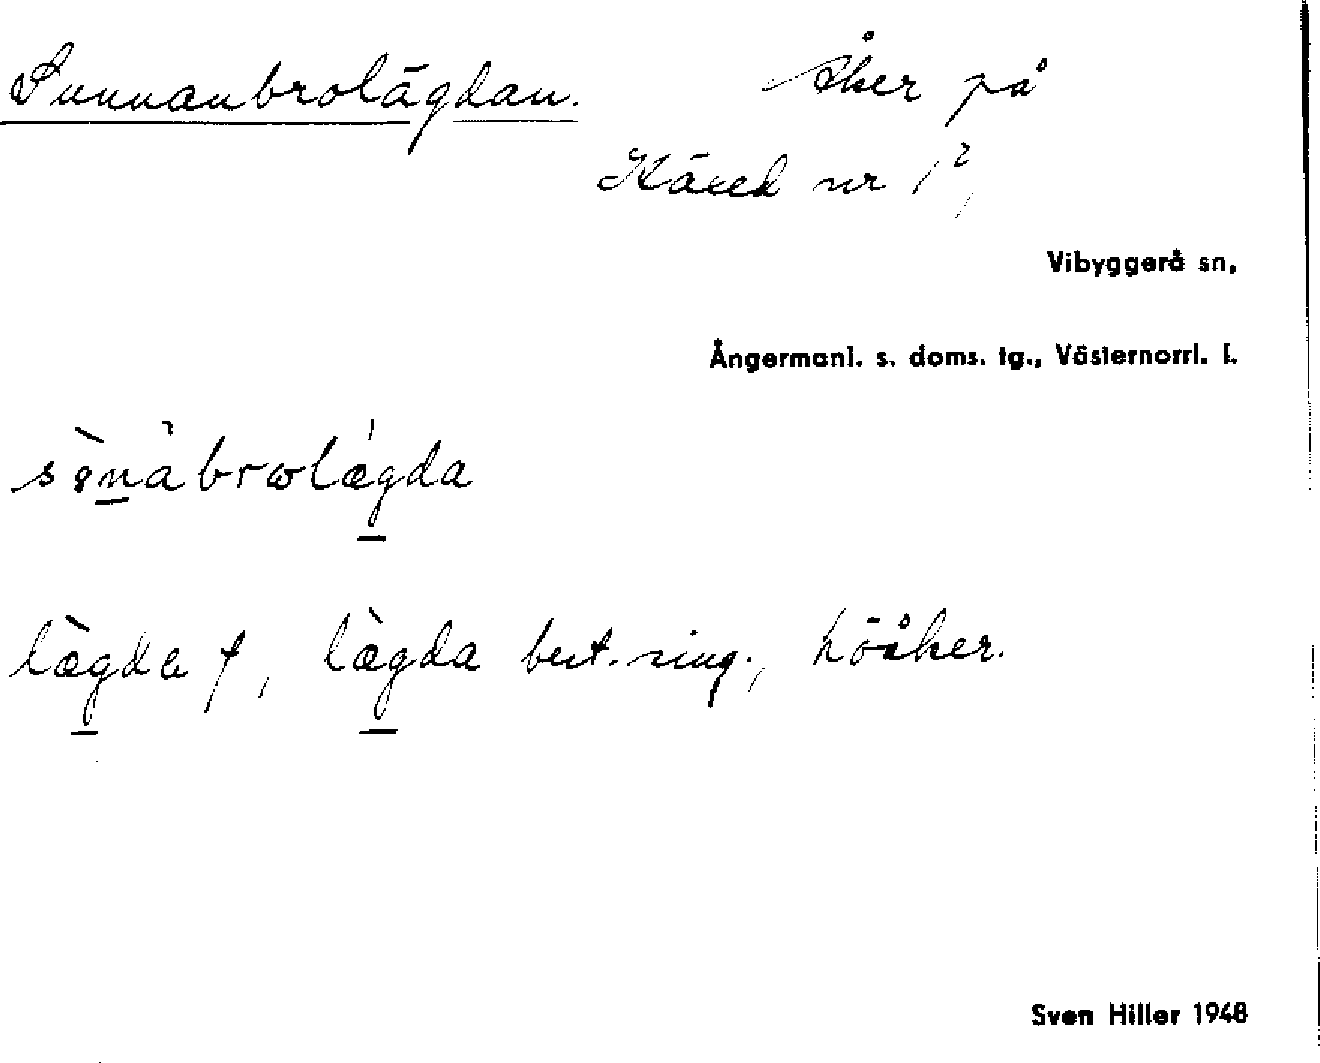 Sunnanbrolägdan. Åker på
Käxed nr 1²,
Vibyggerå sn,
Ångermanl. s. doms. tg., Västernorrl. l.
lægda f, lægda best. sing., höåker.
Sven Hiller 1948